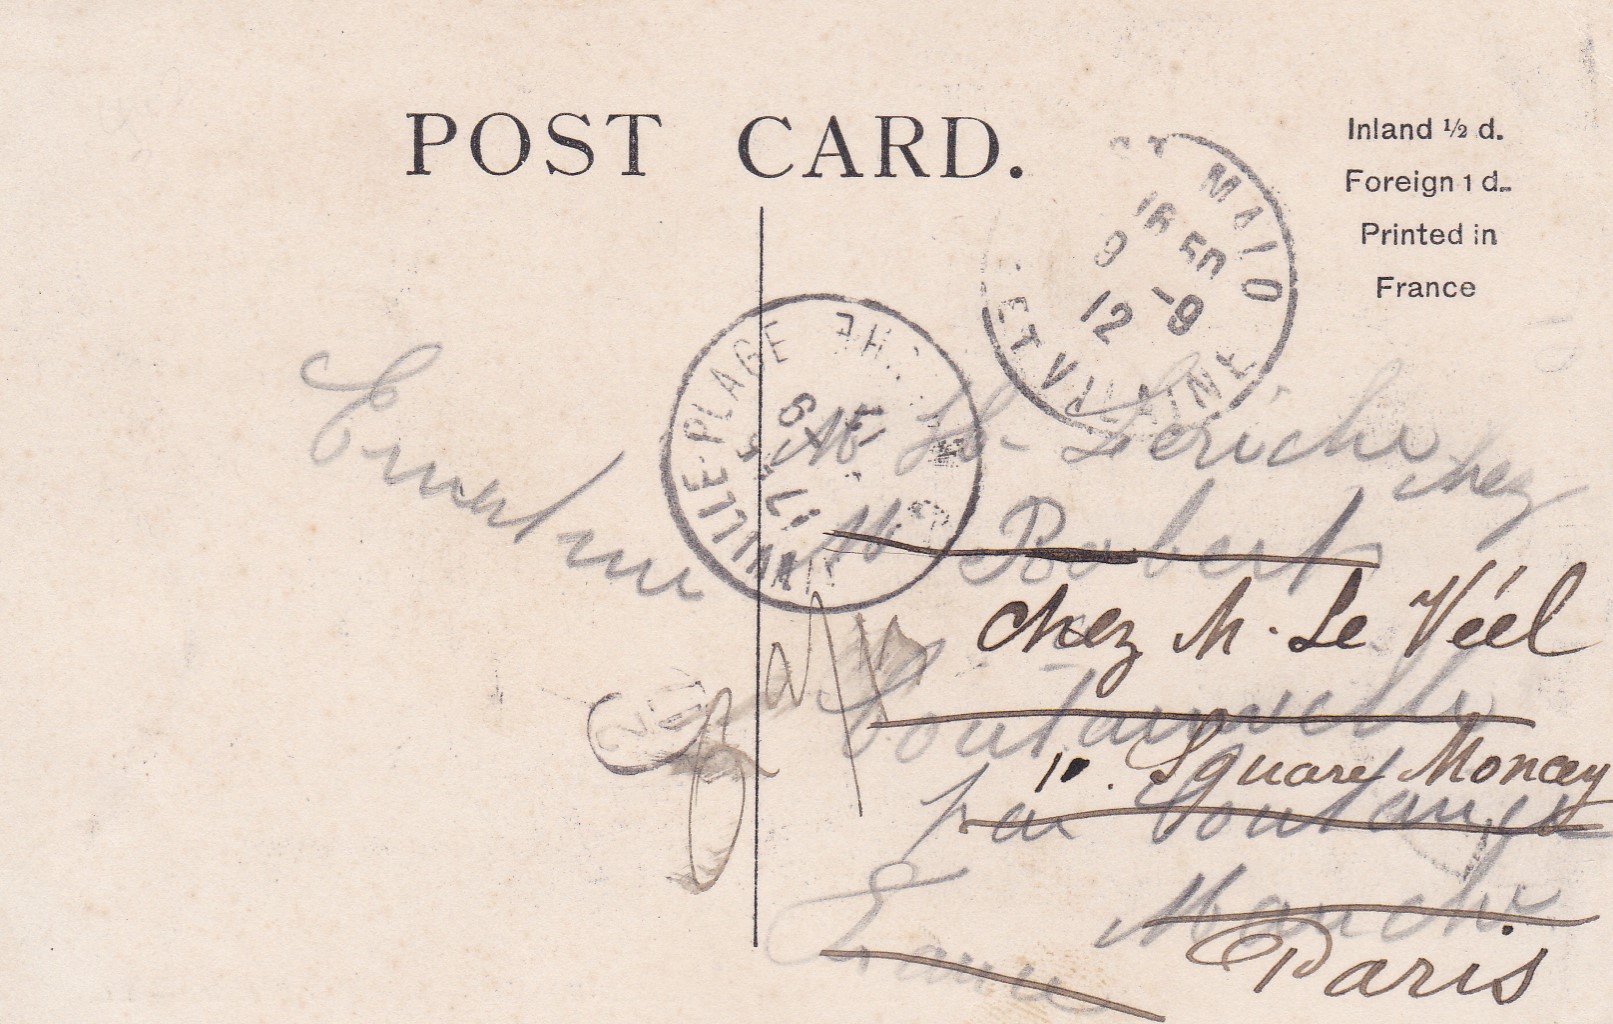 POST CARD.
Inland ½ d.
Foreign 1 d.
Printed in
France
MALO
16 50
9 -9
12
ET VILAINE
VILLE-PLAGE
Ernestine
Leriche chez
M Robert
chez M. Le Véel
Coutainville
10. Square Moncey
par Coutances
Manche
Paris
France